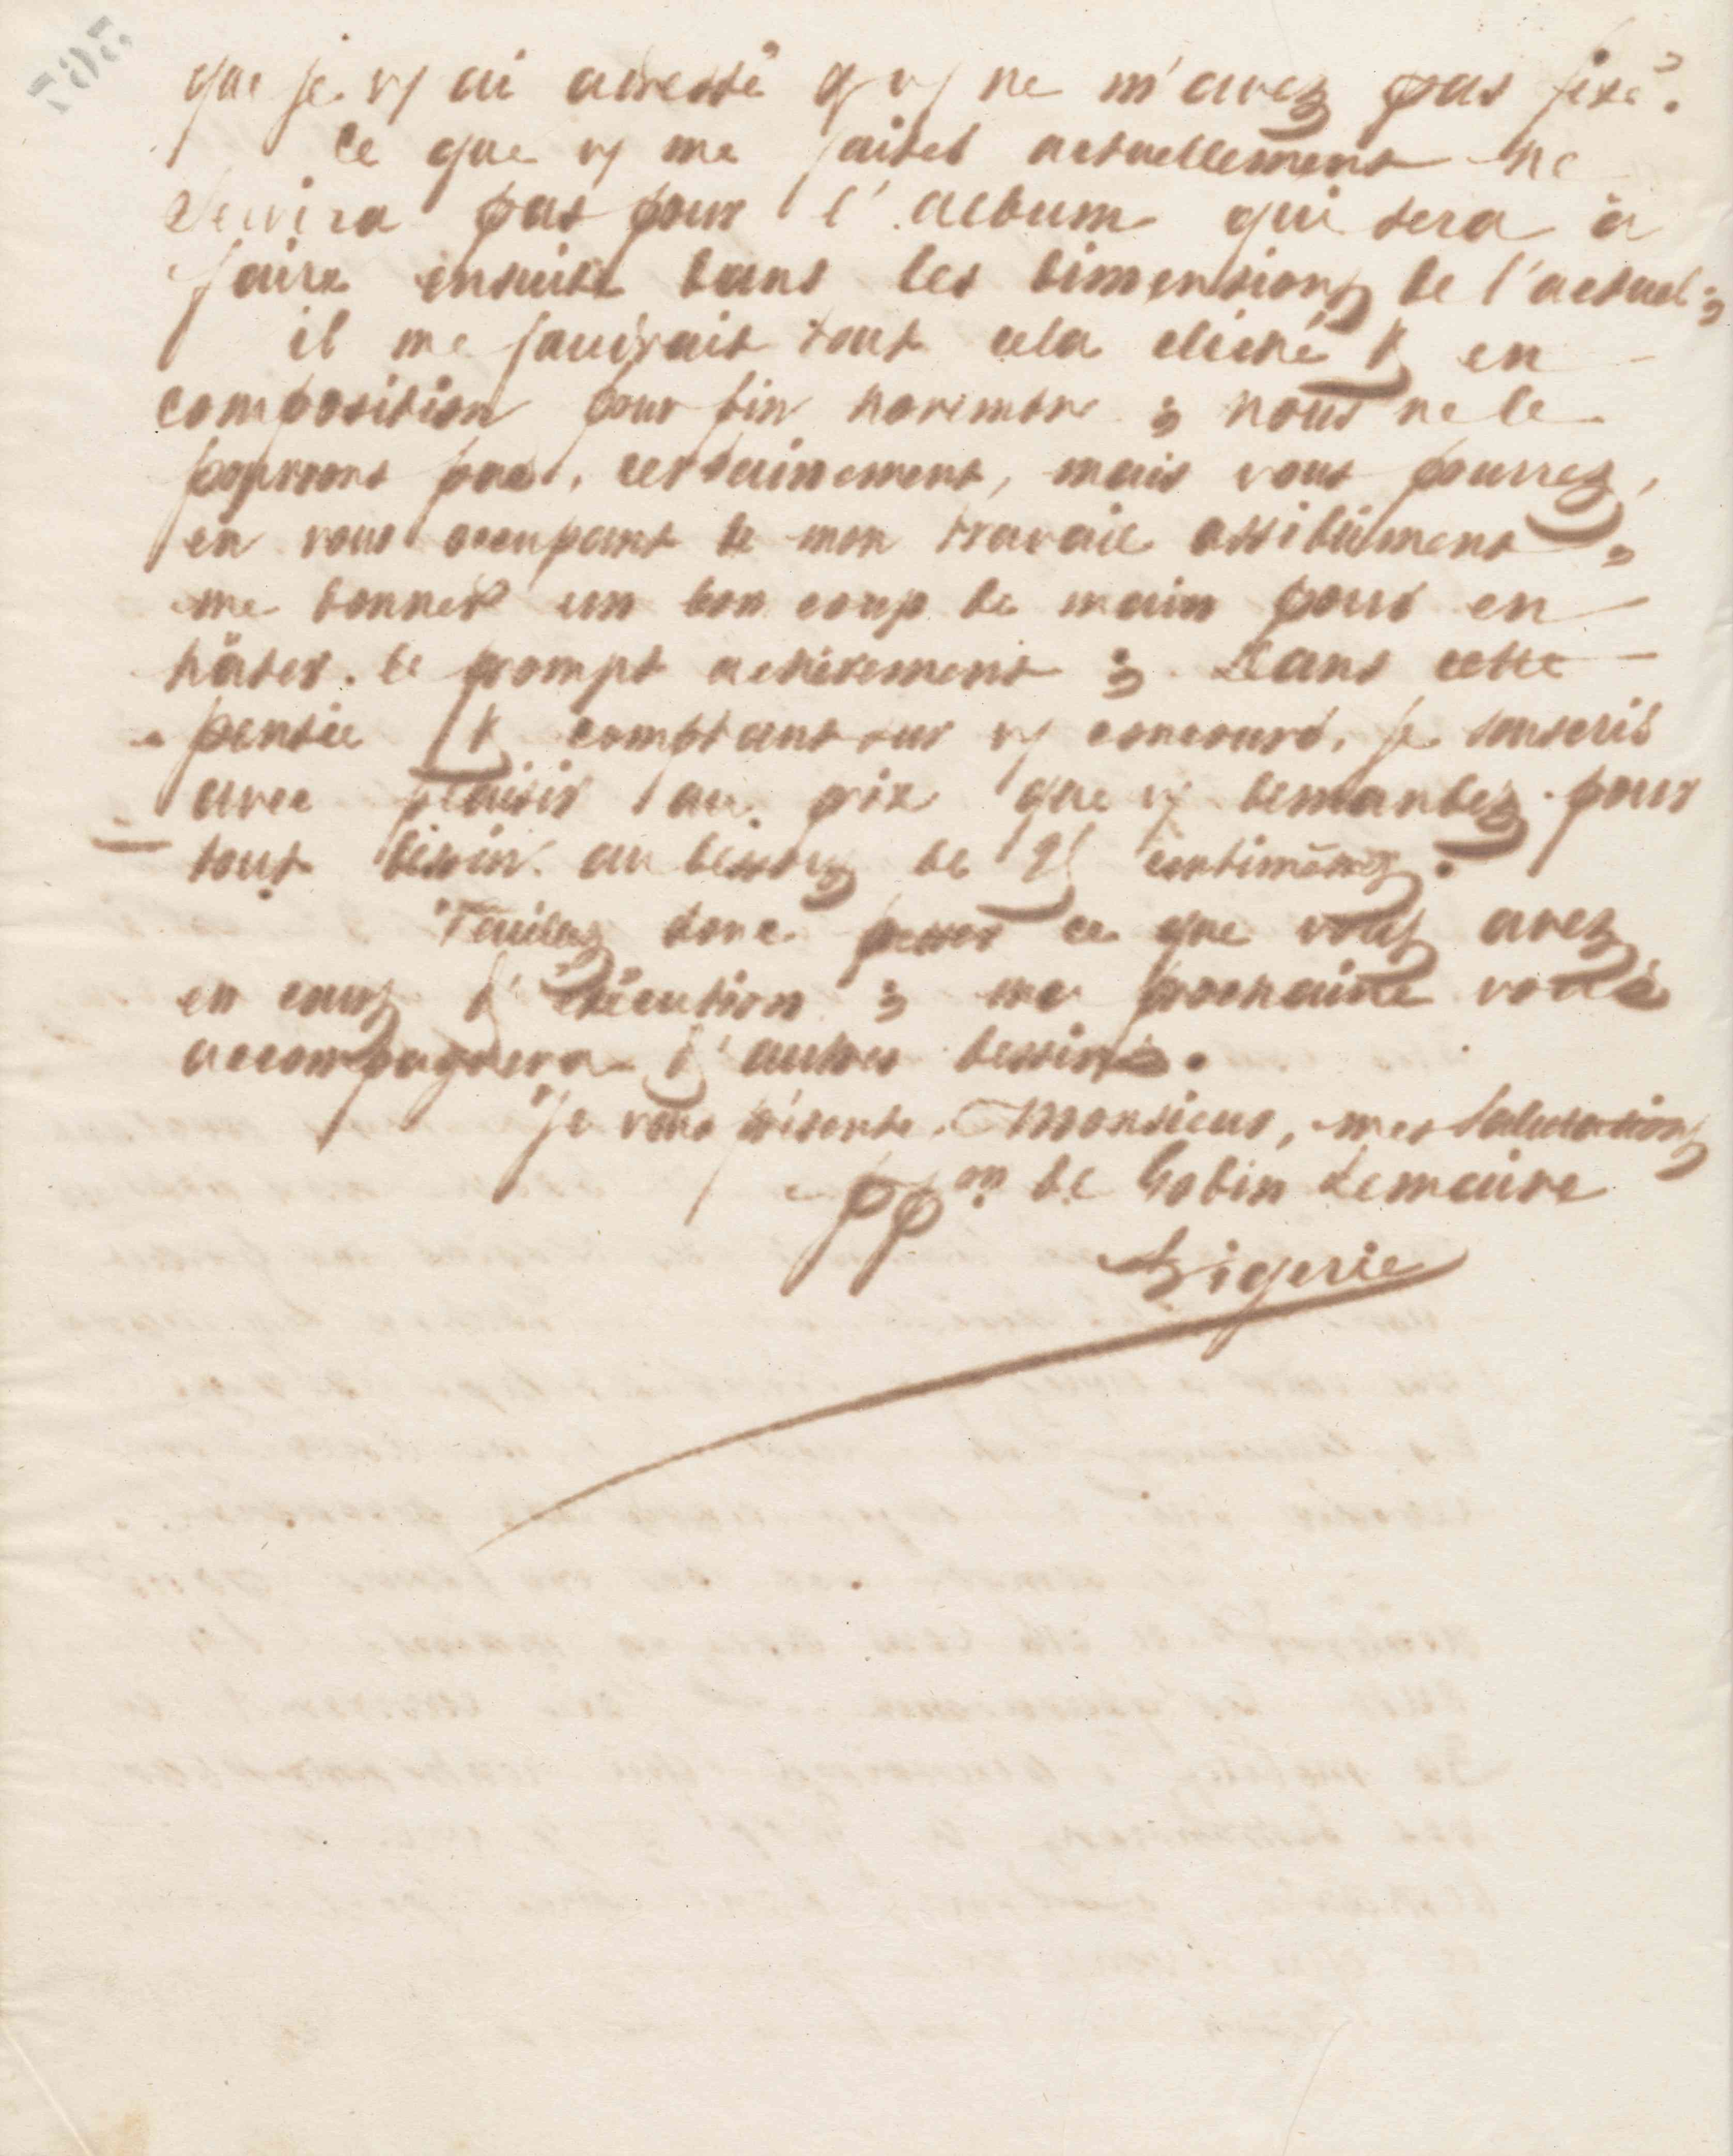 que je vs ai adressé q vs ne m'avez pas fixé.
Ce que vs me faites actuellement ne
servira pas pour l'album qui sera à
faire ensuite dans les dimensions de l'actuel ;
il me faudrait tout cela cliché & en
composition pour fin novembre ; nous ne le
pourrons pas, certainement, mais vous pourrez,
en vous occupant de mon travail assidûment,
me donner un bon coup de main pour en
hâter le prompt achèvement ; Dans cette
pensée & comptant sur vs concours, je souscris
avec plaisir au prix que vs demandez pour
tout dessin au dessous de centimètres.
Veuillez donc ce que vous avez
en cours d'exécution ; ma prochaine vous
accompagnera d'autres dessins.
Je vous présente, Monsieur, mes salutations
ppon de Godin Lemaire